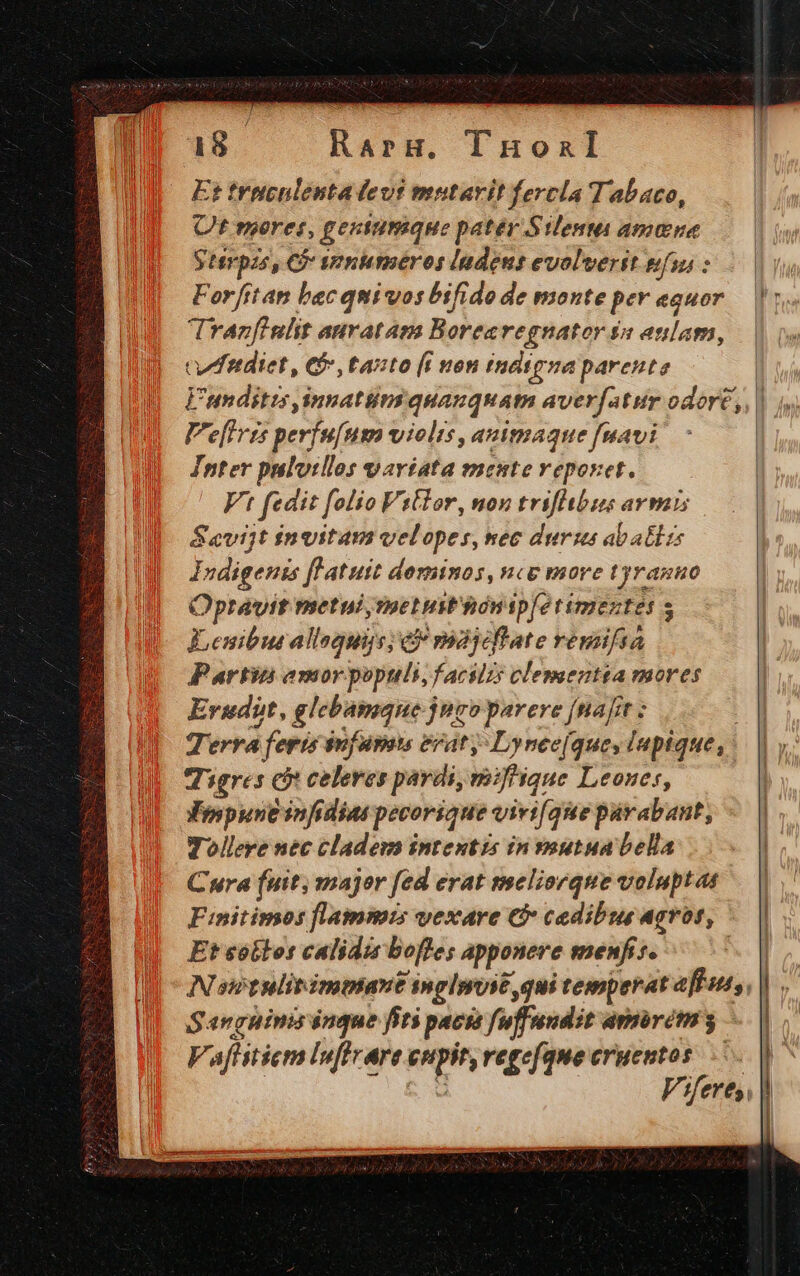 18 RAPH. THORI
Et truculenta levi mutarit fercla Tabaco,
Ut mores, geniumque pater Silenus amœnæ
Stirpis, & innumeros ludens evolverit usus :
Forsitan hæc quivos bifido de monte per æquor
Transtulit auratam Boreæ regnator in aulam,
Audiet, &, tanto si non indigna parente
Funditis, innatum quanquam aversatur odorē,
Vestris perfusum violis, animaque suavi
Inter pulvillos variata mente reponet.
Vt sedit solio Victor, non tristibus armis
Sævijt invitam vel opes, nec durus ab altis
Indigenis statuit dominos, nec more tyranno
Optavit metui, metuit non ipse timentes ;
Lenibus alloquijs, & majestate remissa
Partus amor populi, facilis clementia mores
Erudijt, glebamque jugo parere suasit :
Terra feris infamis erat, Lynces que, lupique,
Tigres & celeres pardi, mistique Leones,
Impune insidias pecorique virisque parabant,
Tollere nec cladem intentis in mutua bella
Cura fuit, major sed erat meliorque voluptas
Finitimos flammis vexare & cædibus agros,
Et coctos calidis hostes apponere mensis.
Non tulit immanē ingluviē, qui temperat æstus,
Sanguinis inque siti pacis suffundit amorem ;
Vastitiem lustrare cupit, regesque cruentos
Visere,